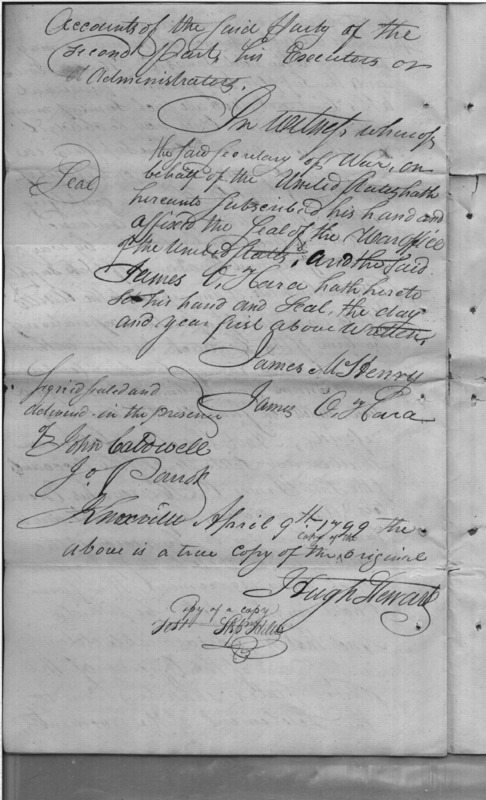 Accounts of the said Party of the
Second Part, his Executors or
Administrators.
In witness whereof
the said Secretary of War, on
Seal
behalf of the United States hath
hereunto subscribed his hand and
affixed the Seal of the War office
of the United States, and the said
James O'Hara hath hereto
set his hand and Seal, the day
and year first above Written.
James McHenry
James O'Hara
Signed sealed and
delivered in the presence
of John Caldwell
Jo
Knoxville April 9th 1799 the
copy of the
above is a true copy of the original
Hugh Stewart
Copy of a copy
Test